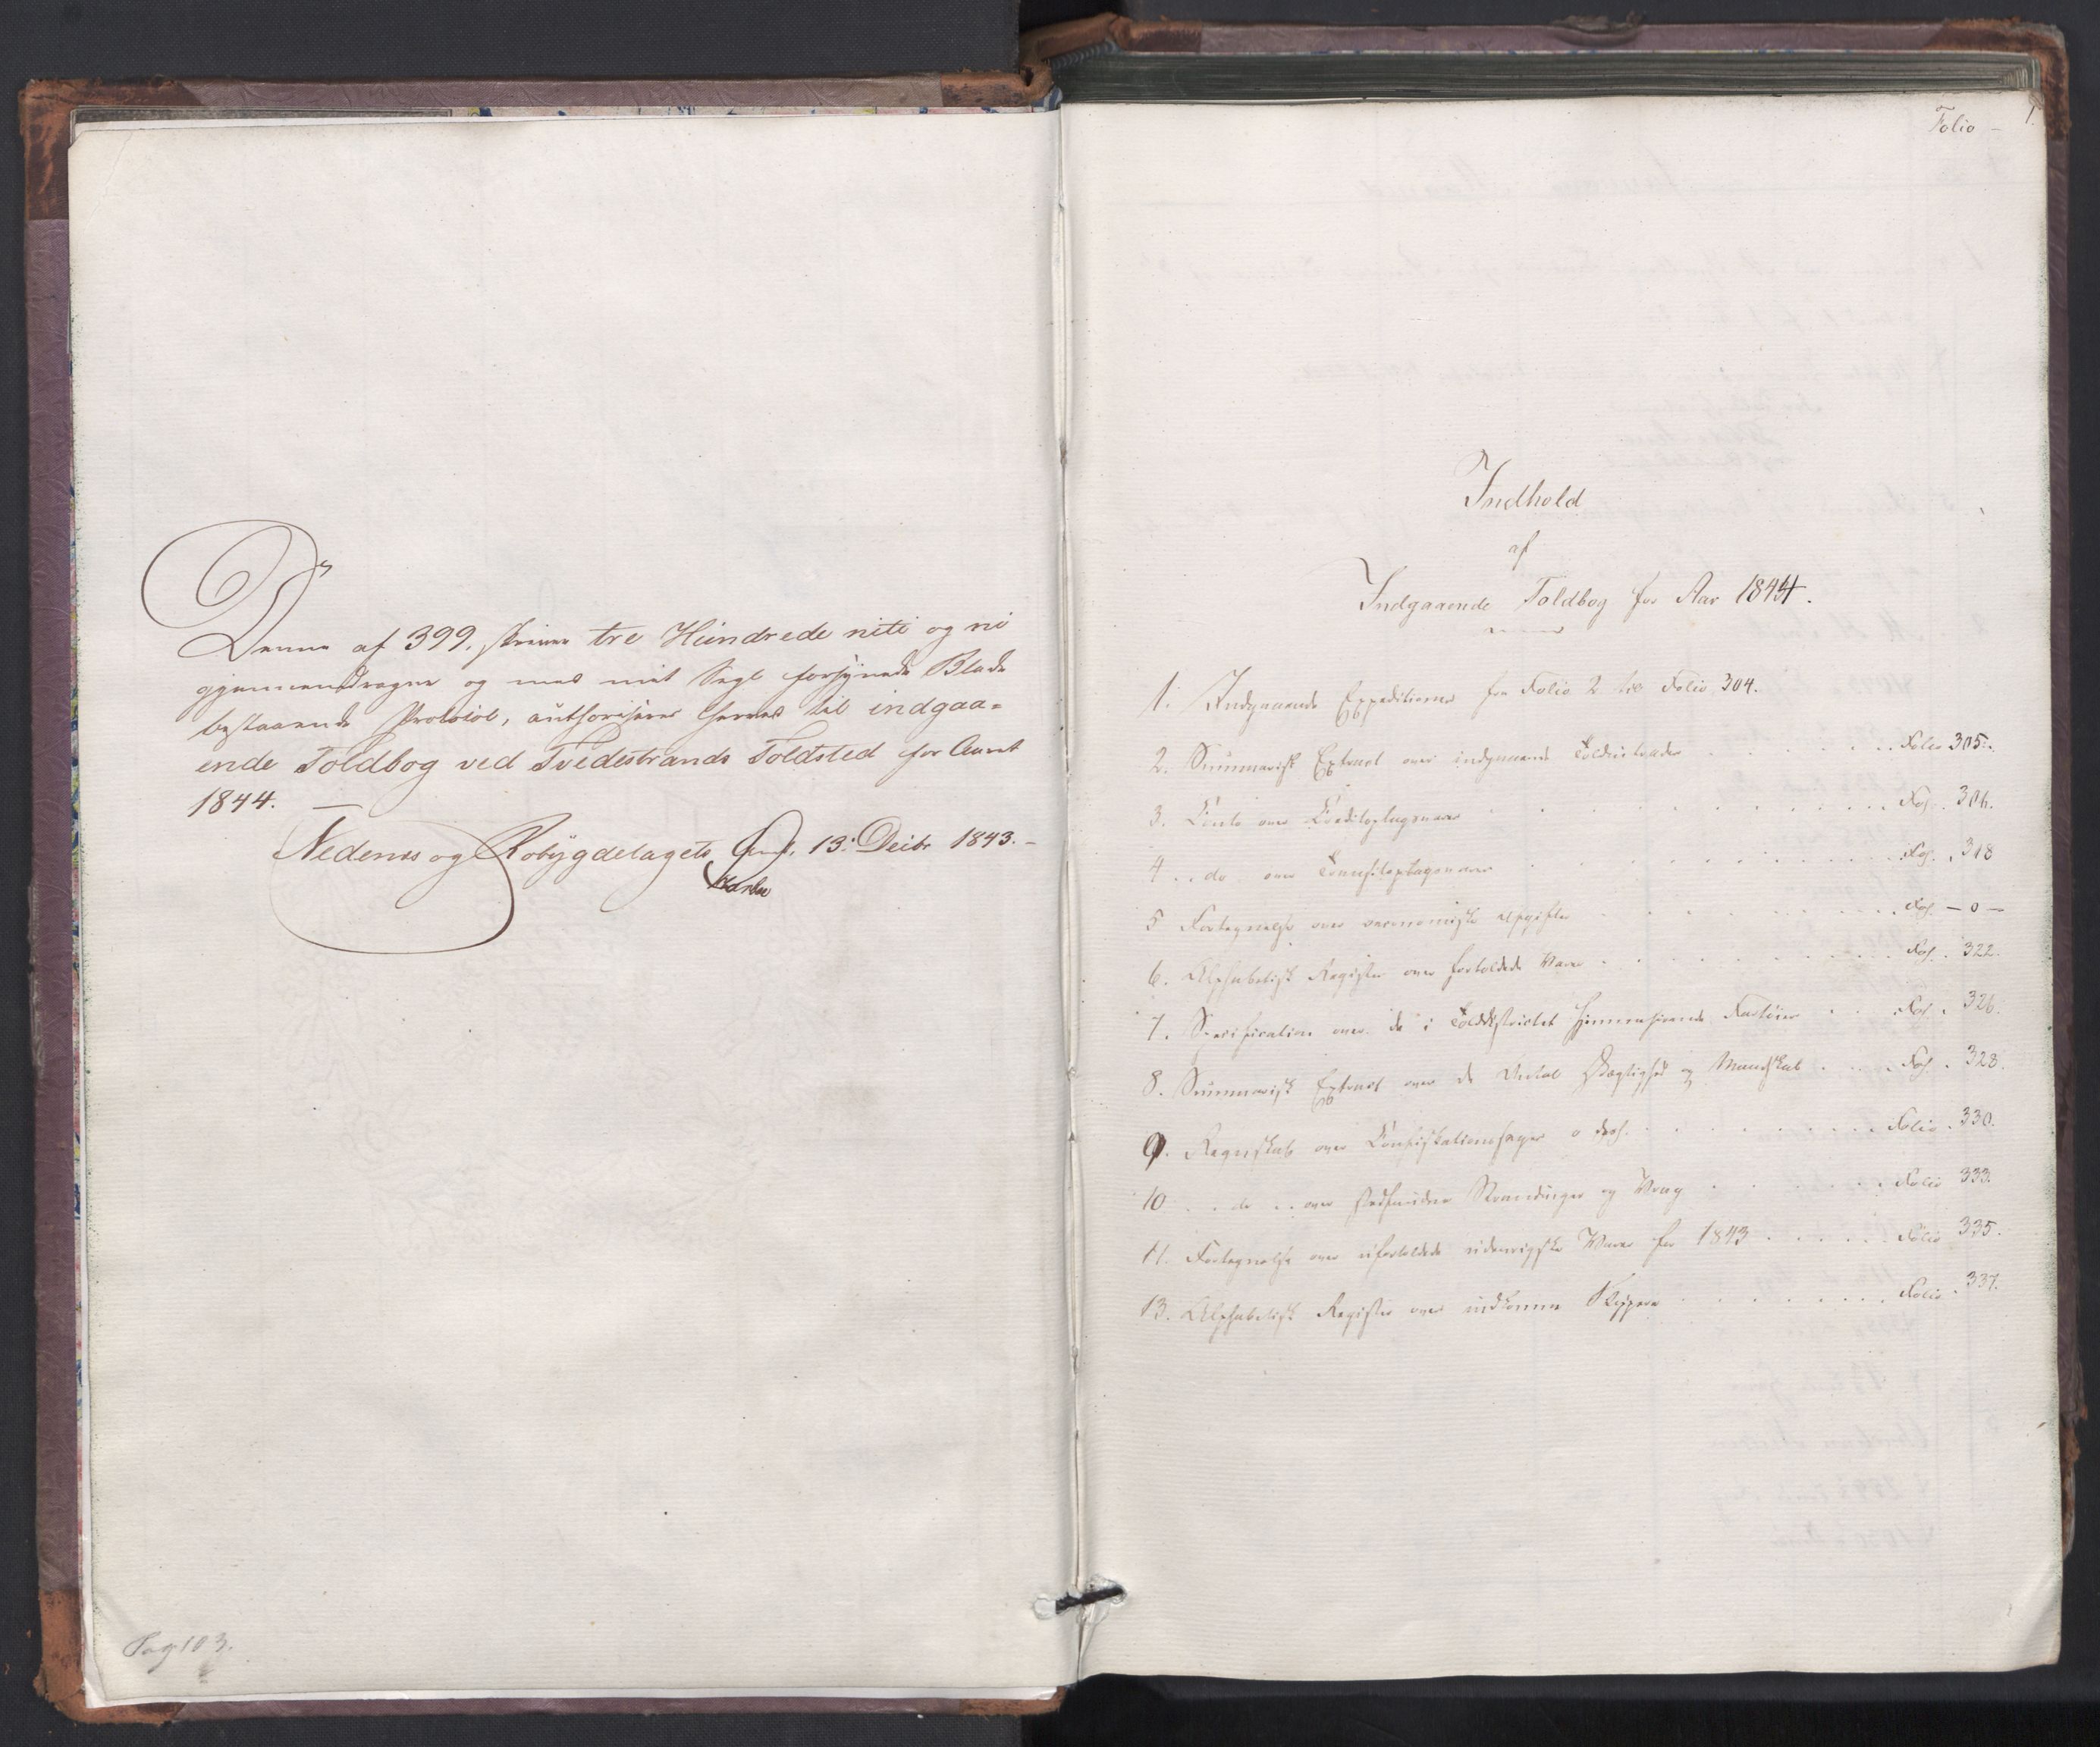 Denne af 399. skriver tre Hundrede niti og ni
gjennemdragne og med mit Segl forsynede Blade
bestaaende Protocol, authoriseres herved til indgaa-
ende Toldbog ved Tvedestrands Toldsted for Aaret
1844. —
Nedenes og Robygdelagets 13: Decbr 1843. –
Pag 103.
Folio – 1.
Indhold
af
Indgaaende Toldbog for Aar 1844.
1. Indgaaende Expeditioner fra Folio 2 til Folio 304.
2. Summarisk Extract over indgaaende Toldintrader . . . . . . . Folio 305.
3. Conto over Creditoplagsvarer . . . . . . . . . . . . Fol. . 306.
4 . . do over Transitoplagsvarer . . . . . . . . . . . . Fol. . 318
5 Fortegnelse over oeconomiske Afgifter . . . . . . . . Fol. — o —
6. Alphabetisk Register over fortoldede Varer . . . . . . . . . . Fol. . 322.
7. Specification over de i Tolddistrictet hjemmehørende Fartøier . . . Fol. . 326.
8. Summarisk Extract over de Antal Drægtighed og Mandskab . . . . Fol. . 328.
9. Regnskab over Confiskationssager o desl. . . . . . . . . Folio . 330.
10 . . do . . over Strandinger og Vrag . . . . . . . Folio 333.
11. Fortegnelse over ufortoldede udenrigske Varer for 1843 . . . . . Folio 335.
13. Alphabetisk Register over indkomne Skippere . . . . . . . . Folio . 337.